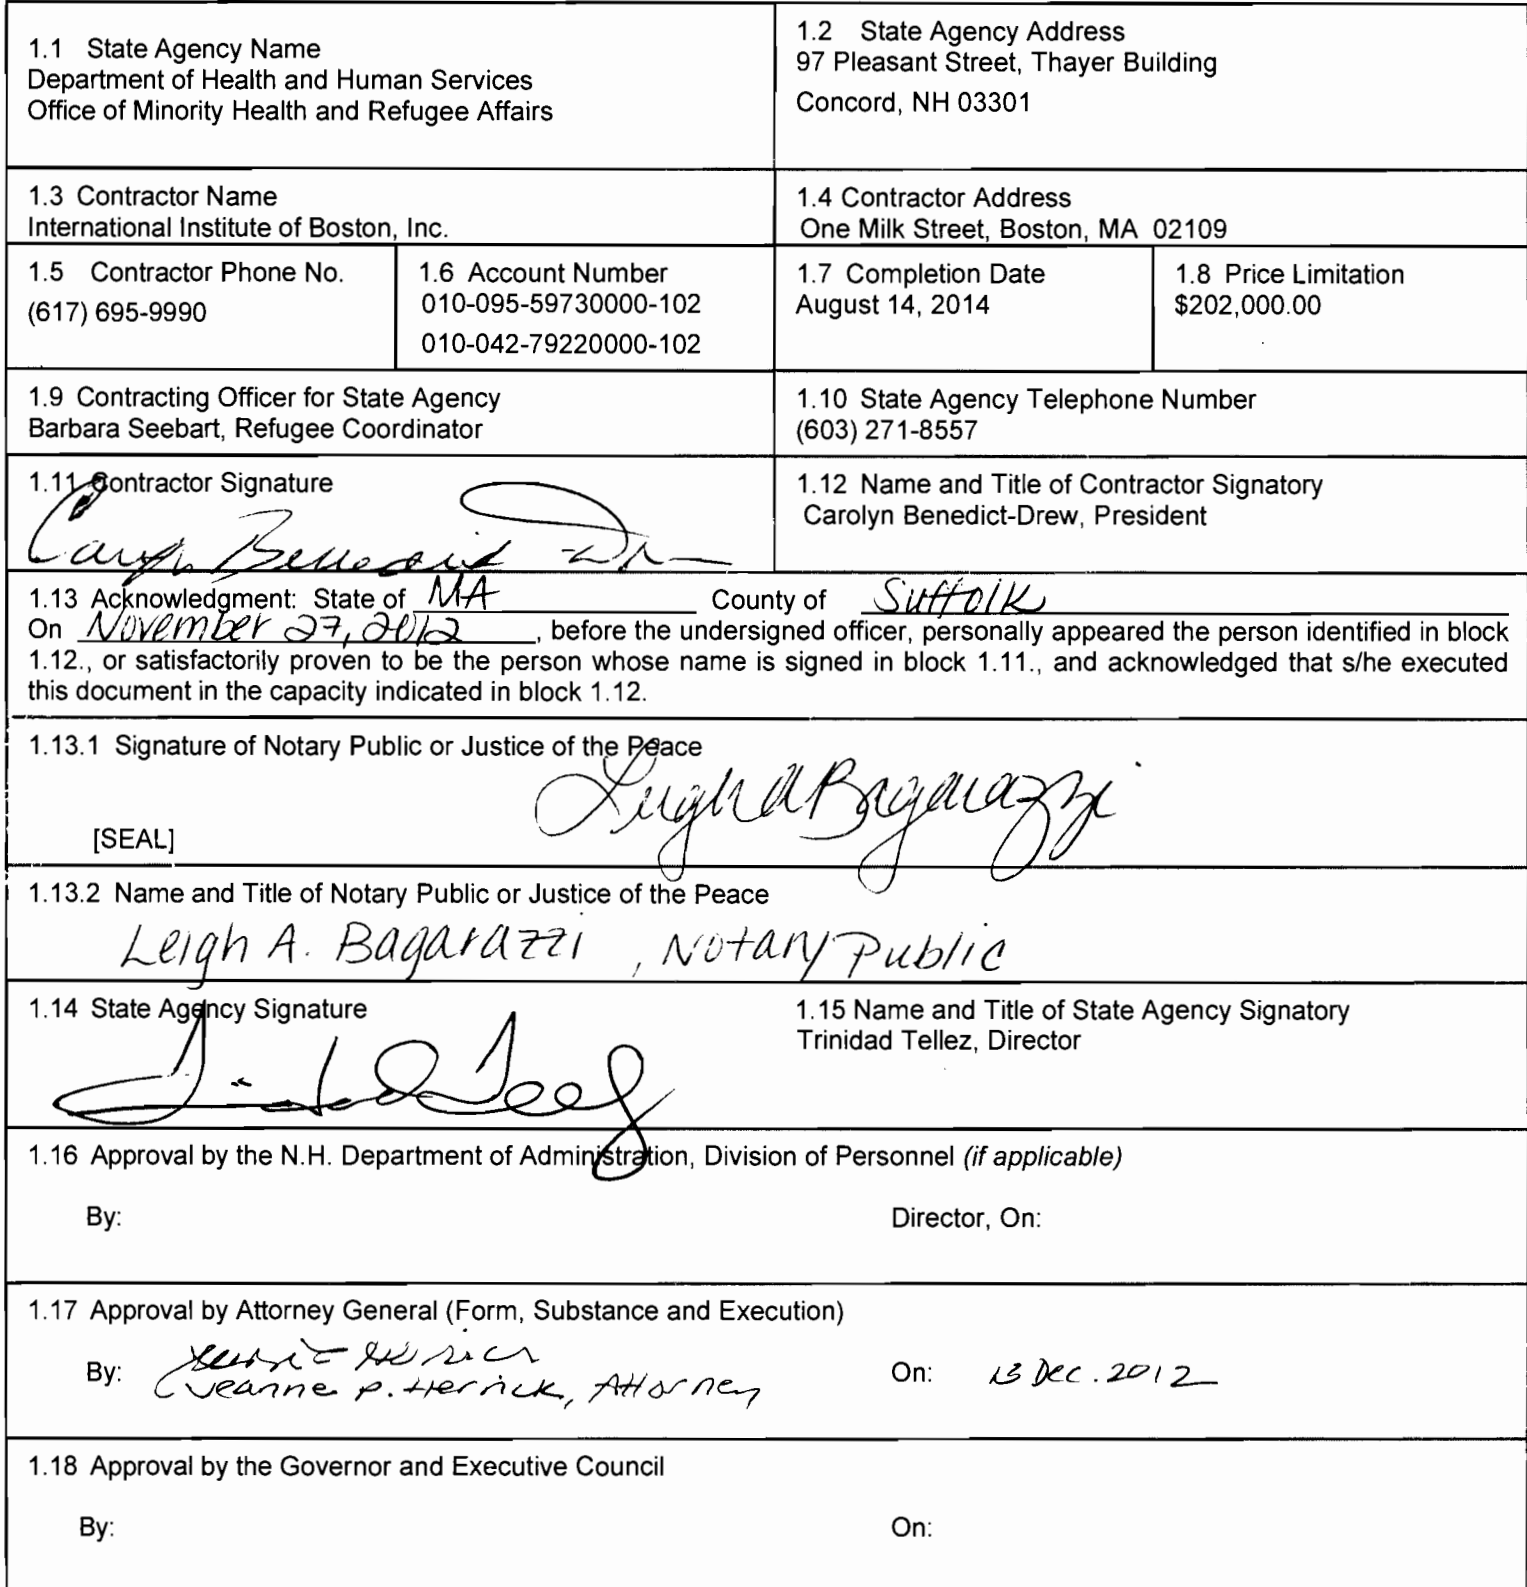 1.1 State Agency Name
Department of Health and Human Services
Office of Minority Health and Refugee Affairs
1.2 State Agency Address
97 Pleasant Street, Thayer Building
Concord, NH 03301
1.3 Contractor Name
International Institute of Boston, Inc.
1.4 Contractor Address
One Milk Street, Boston, MA 02109
1.5 Contractor Phone No.
(617) 695-9990
1.6 Account Number
010-095-59730000-102
010-042-79220000-102
1.7 Completion Date
August 14, 2014
1.8 Price Limitation
$202,000.00
1.9 Contracting Officer for State Agency
Barbara Seebart, Refugee Coordinator
1.10 State Agency Telephone Number
(603) 271-8557
1.11 Contractor Signature
Carolyn Benedict-Drew
1.12 Name and Title of Contractor Signatory
Carolyn Benedict-Drew, President
1.13 Acknowledgment: State of MA County of Suffolk
On November 27, 2012, before the undersigned officer, personally appeared the person identified in block
1.12., or satisfactorily proven to be the person whose name is signed in block 1.11., and acknowledged that s/he executed
this document in the capacity indicated in block 1.12.
1.13.1 Signature of Notary Public or Justice of the Peace
Leigh A Bagarazzi
[SEAL]
1.13.2 Name and Title of Notary Public or Justice of the Peace
Leigh A. Bagarazzi, Notary Public
1.14 State Agency Signature
Trinidad Tellez
1.15 Name and Title of State Agency Signatory
Trinidad Tellez, Director
1.16 Approval by the N.H. Department of Administration, Division of Personnel (if applicable)
By: Director, On:
1.17 Approval by Attorney General (Form, Substance and Execution)
By: Jeanne P. Herrick, Attorney On: 13 Dec. 2012
1.18 Approval by the Governor and Executive Council
By: On: